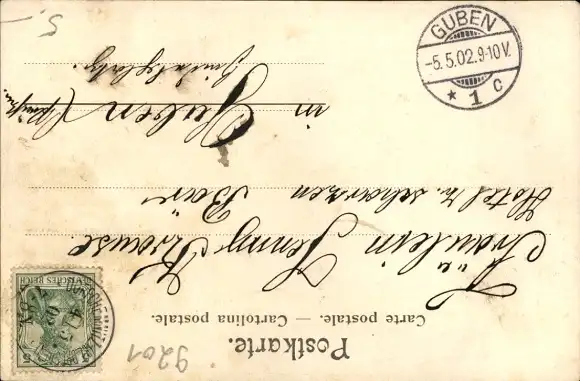 Postkarte.
Carte postale. — Cartolina postale.
Fräulein Jenny Krause.
Hotel z. schwarzen Bär
in Guben
GUBEN
-5.5.02.9-10V.
* 1 c
DEUTSCHES REICH
5
5
9201
5.